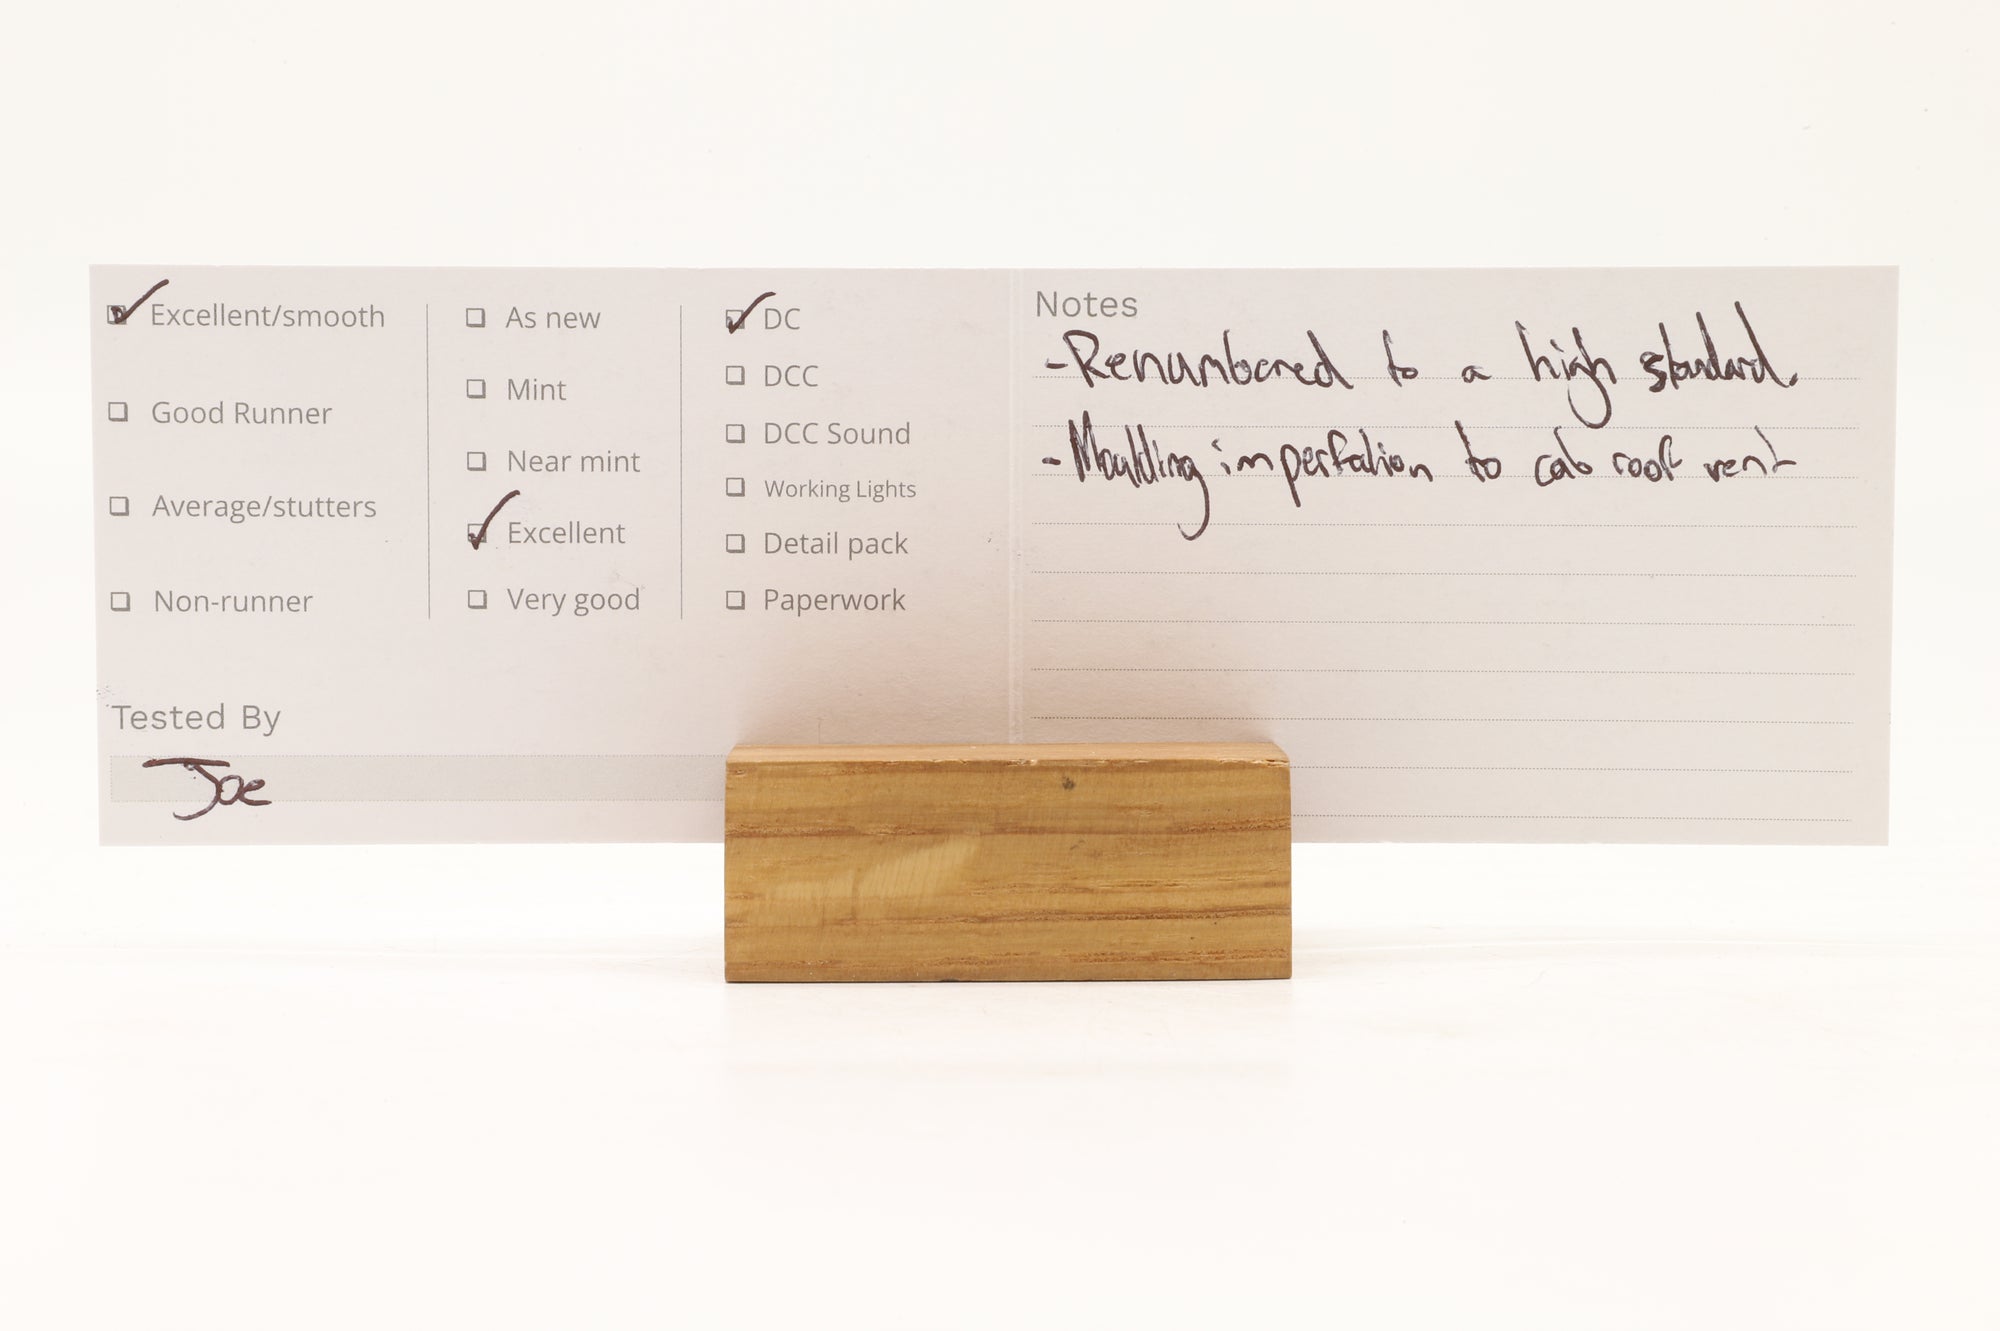 Excellent/smooth
Good Runner
Average/stutters
Non-runner
As new
Mint
Near mint
Excellent
Very good
DC
DCC
DCC Sound
Working Lights
Detail pack
Paperwork
Tested By
Joe
Notes
- Renumbered to a high standard.
- Moulding imperfation to cab roof vent